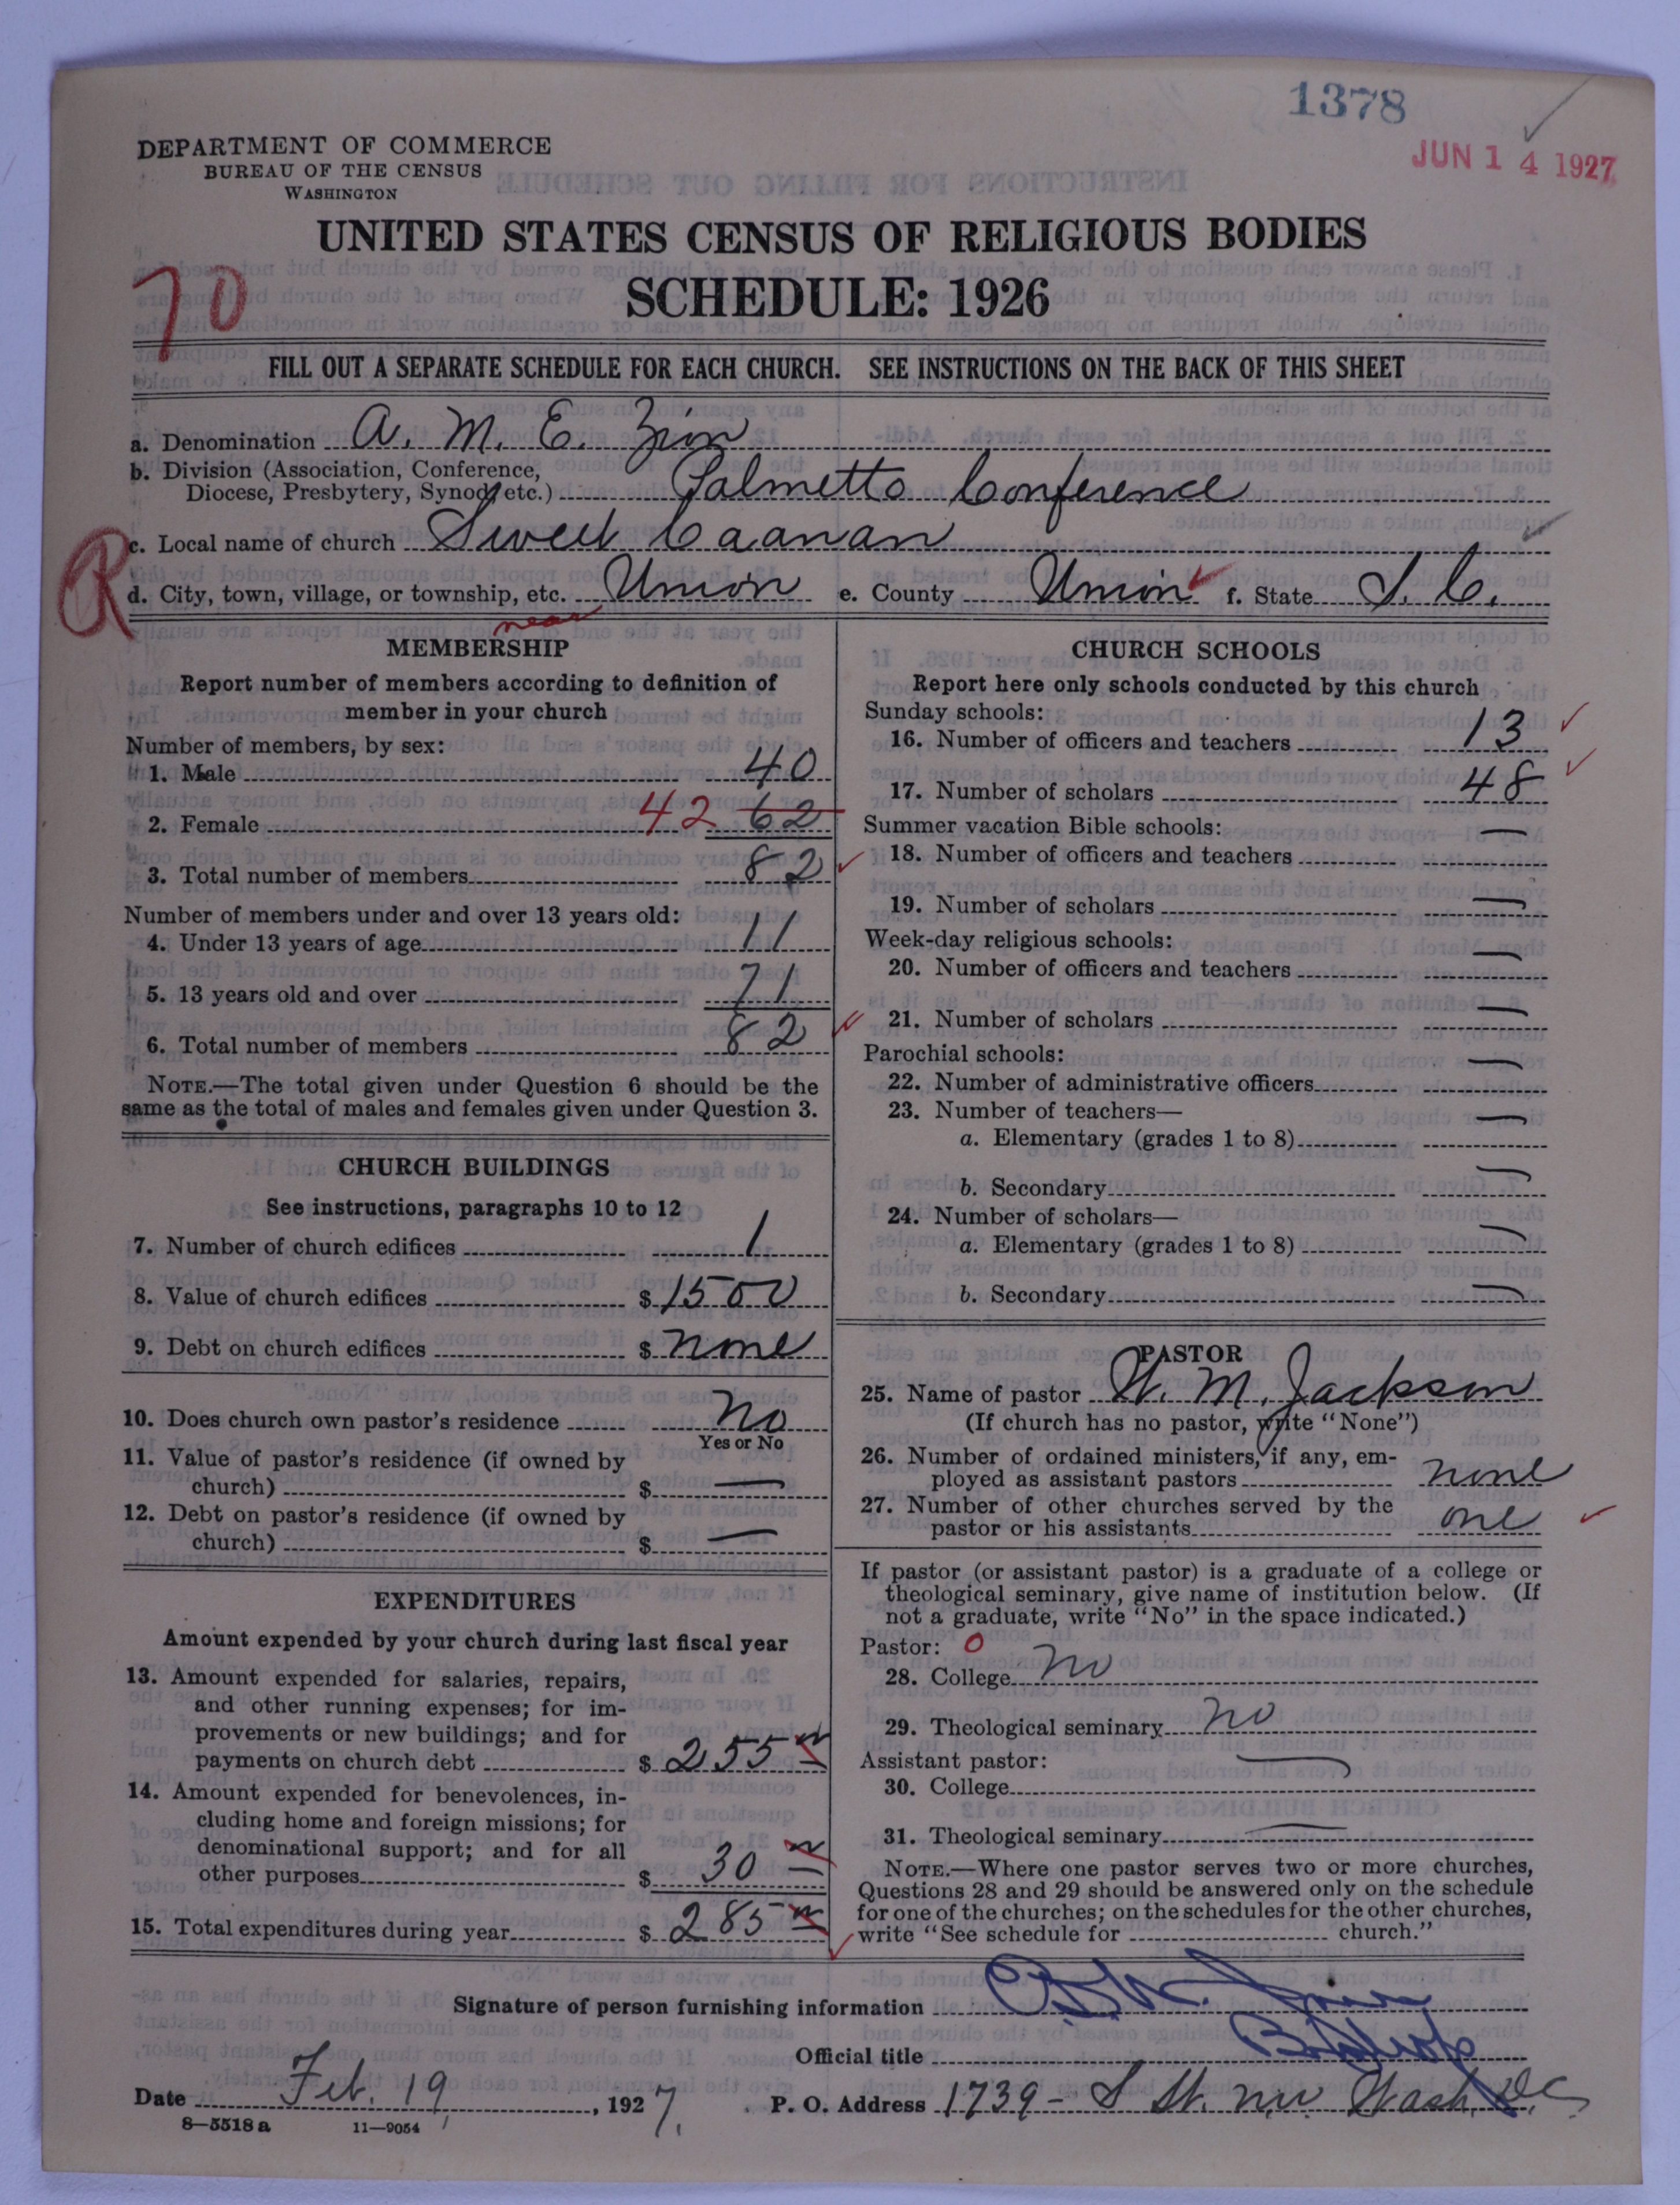 1378
JUN 14 1927
DEPARTMENT OF COMMERCE
BUREAU OF THE CENSUS
WASHINGTON
UNITED STATES CENSUS OF RELIGIOUS BODIES
SCHEDULE: 1926
70
FILL OUT A SEPARATE SCHEDULE FOR EACH CHURCH. SEE INSTRUCTIONS ON THE BACK OF THIS SHEET
a. Denomination A. M. E. Zion
b. Division (Association, Conference,
Diocese, Presbytery, Synod, etc.) Palmetto Conference
R
c. Local name of church Sweet Caanan
d. City, town, village, or township, etc. Union e. County Union f. State S. C.
near
MEMBERSHIP
Report number of members according to definition of
member in your church
Number of members, by sex:
1. Male 40
2. Female 42 62
3. Total number of members 82
Number of members under and over 13 years old:
4. Under 13 years of age 11
5. 13 years old and over 71
6. Total number of members 82
NOTE.—The total given under Question 6 should be the
same as the total of males and females given under Question 3.
CHURCH BUILDINGS
See instructions, paragraphs 10 to 12
7. Number of church edifices 1
8. Value of church edifices $ 1500
9. Debt on church edifices $ none
10. Does church own pastor's residence No
Yes or No
11. Value of pastor's residence (if owned by
church) $ —
12. Debt on pastor's residence (if owned by
church) $ —
EXPENDITURES
Amount expended by your church during last fiscal year
13. Amount expended for salaries, repairs,
and other running expenses; for im-
provements or new buildings; and for
payments on church debt $ 255
14. Amount expended for benevolences, in-
cluding home and foreign missions; for
denominational support; and for all
other purposes $ 30
15. Total expenditures during year $ 285
CHURCH SCHOOLS
Report here only schools conducted by this church
Sunday schools:
16. Number of officers and teachers 13
17. Number of scholars 48
Summer vacation Bible schools:
18. Number of officers and teachers —
19. Number of scholars —
Week-day religious schools:
20. Number of officers and teachers —
21. Number of scholars —
Parochial schools:
22. Number of administrative officers —
23. Number of teachers—
a. Elementary (grades 1 to 8) —
b. Secondary —
24. Number of scholars—
a. Elementary (grades 1 to 8) —
b. Secondary —
PASTOR
25. Name of pastor W. M. Jackson
(If church has no pastor, write "None")
26. Number of ordained ministers, if any, em-
ployed as assistant pastors none
27. Number of other churches served by the
pastor or his assistants one
If pastor (or assistant pastor) is a graduate of a college or
theological seminary, give name of institution below. (If
not a graduate, write "No" in the space indicated.)
Pastor: 0
28. College No
29. Theological seminary No
Assistant pastor:
30. College —
31. Theological seminary —
NOTE.—Where one pastor serves two or more churches,
Questions 28 and 29 should be answered only on the schedule
for one of the churches; on the schedules for the other churches,
write "See schedule for church."
Signature of person furnishing information
Official title Bishop
Date Feb. 19, 1927. P. O. Address 1739 - S St. nw Wash, DC
8—5518 a 11—9054